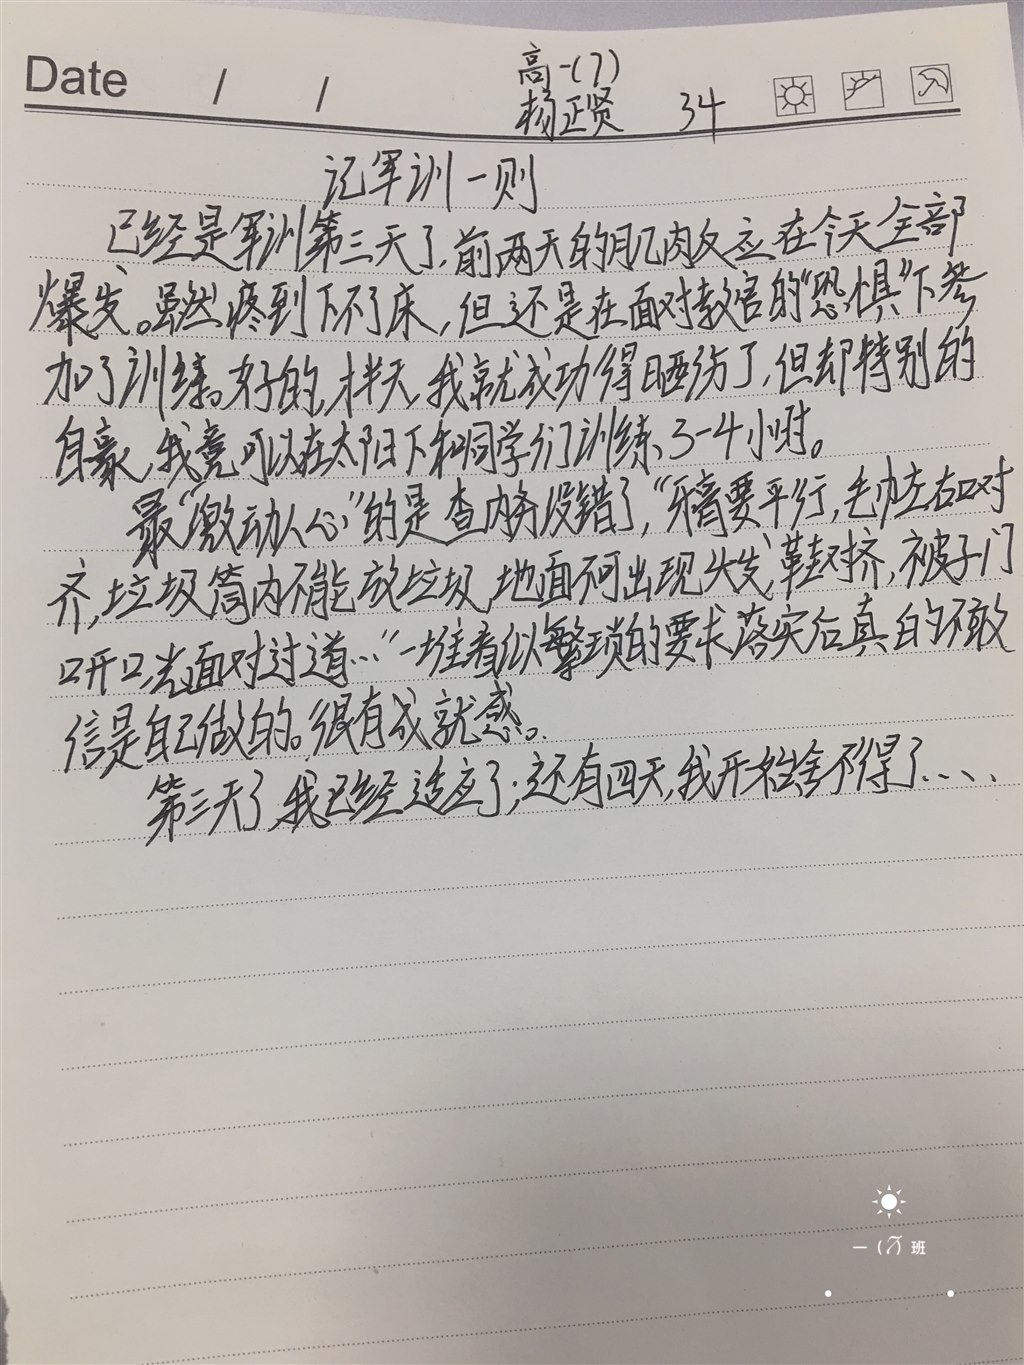 Date / /
高一(7)
杨正贤 34
记军训一则
已经是军训第三天了,前两天的肌肉反应在今天全部
爆发。虽然疼到下不了床,但还是在面对教官的“恐惧”下参
加了训练。好的,半天,我就成功得晒伤了,但却特别的
自豪,我竟可以在太阳下和同学们训练3-4小时。
最“激动人心”的是查内务没错了,“牙膏要平行,毛巾左右对
齐,垃圾筒内不能放垃圾,地面不可出现头发,鞋对齐,被子门
口开口处面对过道…”一堆看似繁琐的要求落实后真的不敢
信是自己做的。很有成就感。
第三天了,我已经适应了;还有四天,我开始舍不得了....
一(7)班